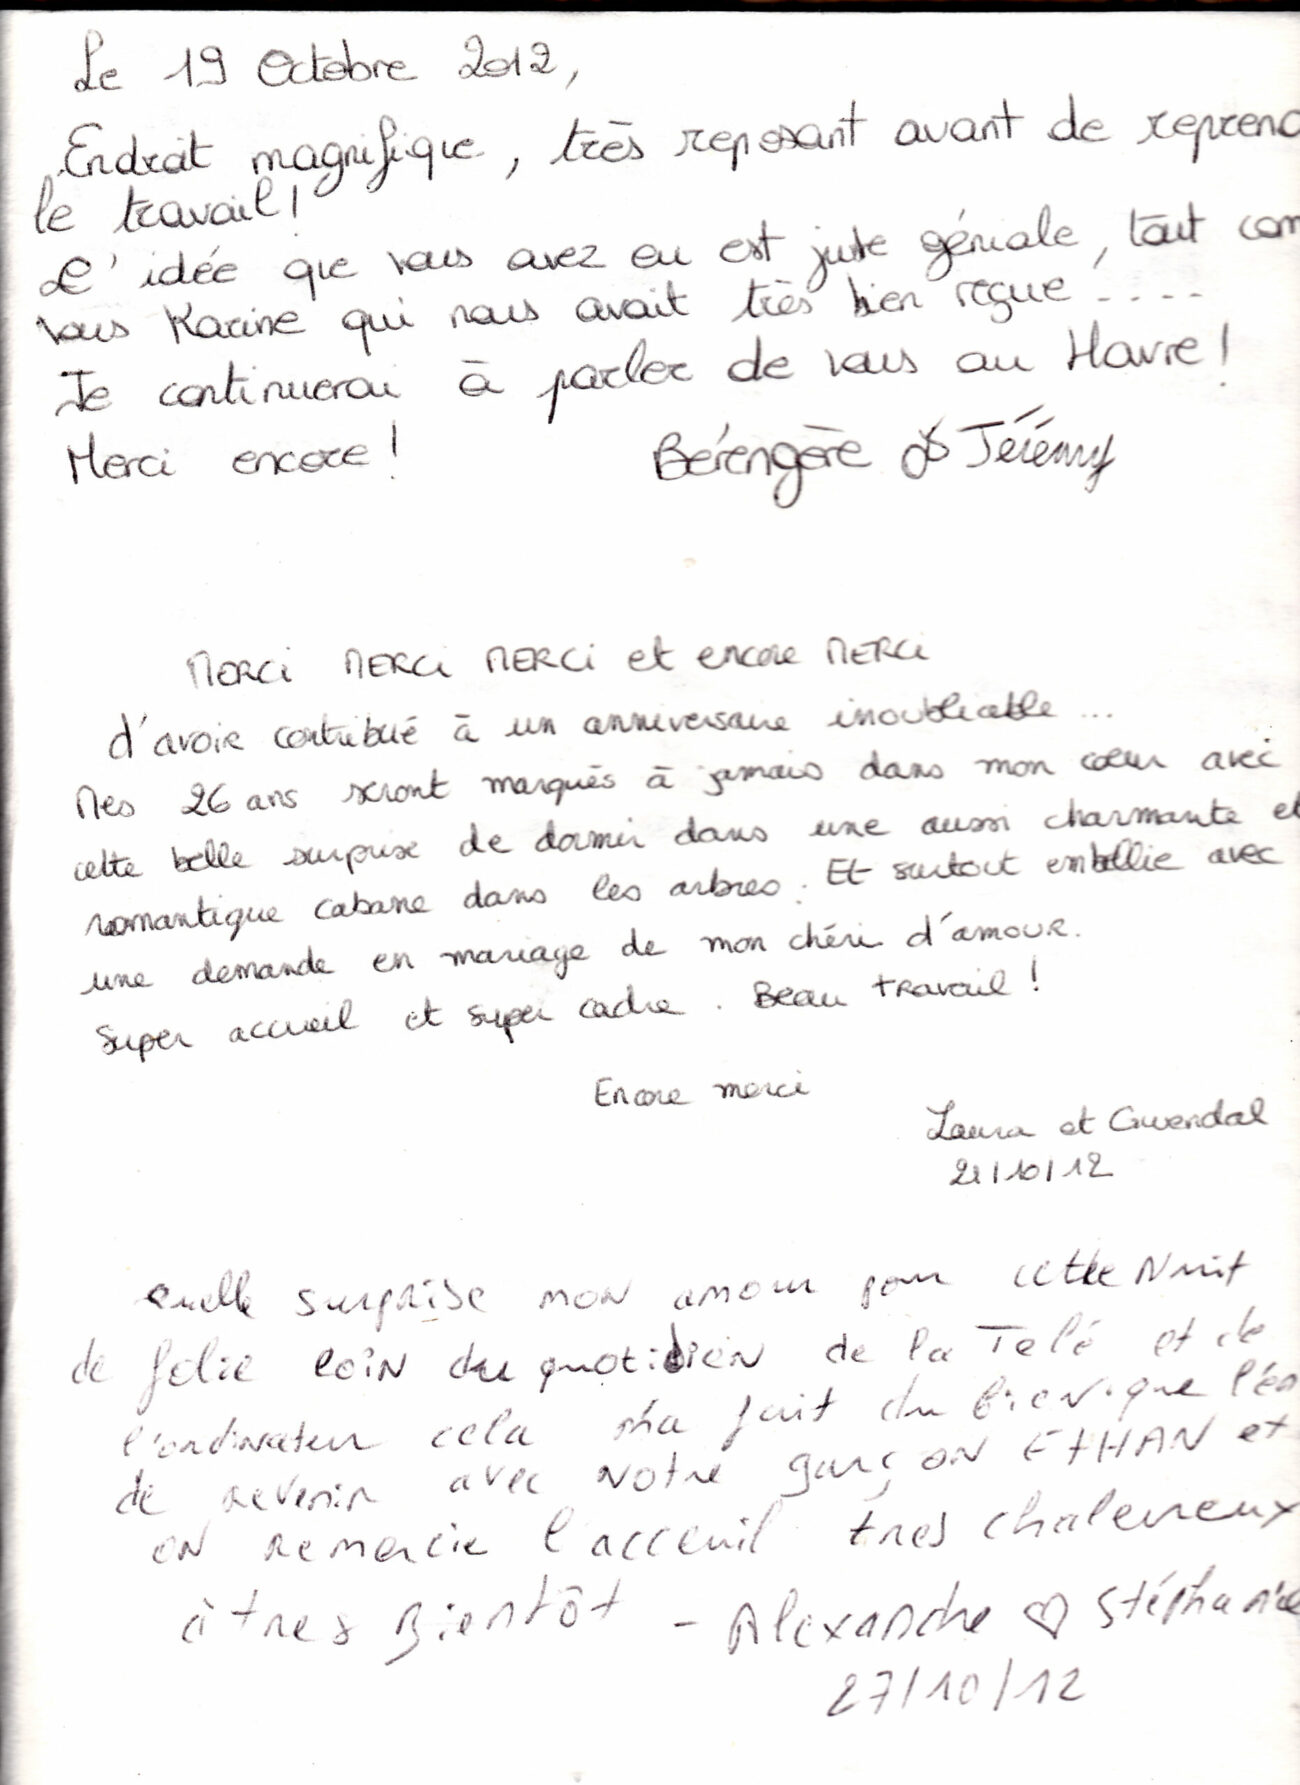 Le 19 Octobre 2012,
Endroit magnifique, très reposant avant de reprend
le travail!
L'idée que vous avez eu est juste géniale, tout com
vous Karine qui nous avait très bien reçue .....
Je continuerai à parler de vous au Havre!
Merci encore!
Bérengère & Jérémy
MERCI MERCI MERCI et encore MERCI
d'avoir contribué à un anniversaire inoubliable ...
Mes 26 ans seront marqués à jamais dans mon cœur avec
cette belle surprise de dormir dans une aussi charmante et
romantique cabane dans les arbres. Et surtout embellie avec
une demande en mariage de mon chéri d'amour.
Super accueil et super cadre. Beau travail!
Encore merci
Laura et Gwendal
21/10/12
Quelle surprise mon amour pour cette Nuit
de folie loin du quotidien de la Telé et de
l'ordinateur cela m'a fait du bien. que l'en
de revenir avec Notre garçon ETHAN et
on remercie l'acceuil tres chaleureux
à tres Bientôt - Alexandre ♡ Stéphanie
27/10/12